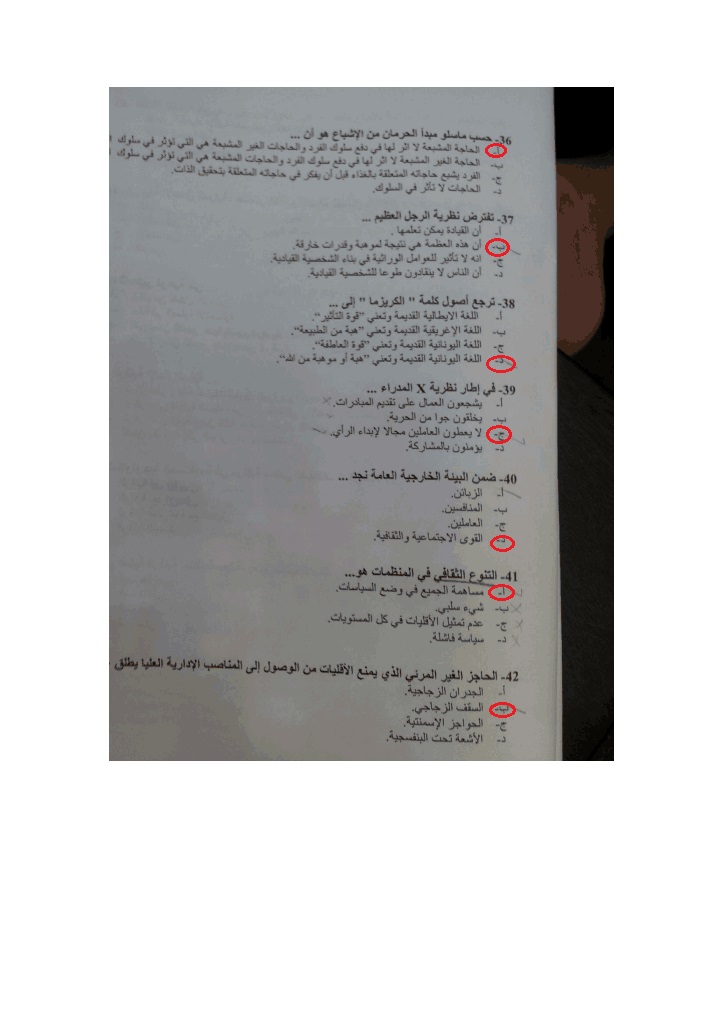 36- حسب ماسلو مبدأ الحرمان من الإشباع هو أن ...
أ- الحاجة المشبعة لا اثر لها في دفع سلوك الفرد والحاجات الغير المشبعة هي التي تؤثر في سلوك
ب- الحاجة الغير المشبعة لا اثر لها في دفع سلوك الفرد والحاجات المشبعة هي التي تؤثر في سلوك
ج- الفرد يشبع حاجاته المتعلقة بالغذاء قبل أن يفكر في حاجاته المتعلقة بتحقيق الذات.
د- الحاجات لا تأثر في السلوك.
37- تفترض نظرية الرجل العظيم ...
أ- أن القيادة يمكن تعلمها .
ب- أن هذه العظمة هي نتيجة لموهبة وقدرات خارقة.
ج- انه لا تأثير للعوامل الوراثية في بناء الشخصية القيادية.
د- أن الناس لا ينقادون طوعا للشخصية القيادية.
38- ترجع أصول كلمة " الكريزما " إلى ...
أ- اللغة الايطالية القديمة وتعني "قوة التأثير".
ب- اللغة الإغريقية القديمة وتعني "هبة من الطبيعة".
ج- اللغة اليونانية القديمة وتعني "قوة العاطفة".
د- اللغة اليونانية القديمة وتعني "هبة أو موهبة من الله".
39- في إطار نظرية X المدراء ...
أ- يشجعون العمال على تقديم المبادرات.
ب- يخلقون جوا من الحرية.
ج- لا يعطون العاملين مجالا لإبداء الرأي.
د- يؤمنون بالمشاركة.
40- ضمن البيئة الخارجية العامة نجد ...
أ- الزبائن.
ب- المنافسين.
ج- العاملين.
د- القوى الاجتماعية والثقافية.
41- التنوع الثقافي في المنظمات هو...
أ- مساهمة الجميع في وضع السياسات.
ب- شيء سلبي.
ج- عدم تمثيل الأقليات في كل المستويات.
د- سياسة فاشلة.
42- الحاجز الغير المرئي الذي يمنع الأقليات من الوصول إلى المناصب الإدارية العليا يطلق
أ- الجدران الزجاجية.
ب- السقف الزجاجي.
ج- الحواجز الإسمنتية.
د- الأشعة تحت البنفسجية.